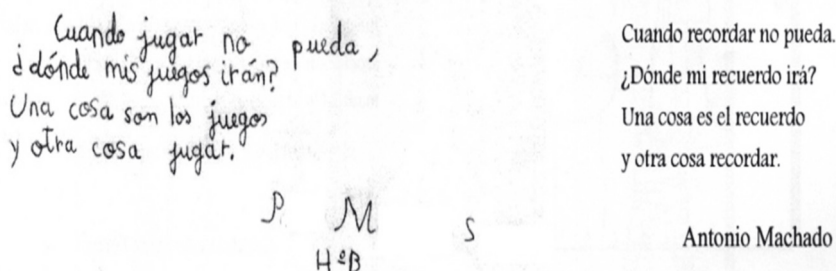 Cuando jugar no pueda,
¿dónde mis juegos irán?
Una cosa son los juegos
y otra cosa jugar.
P. M S
4ºB
Cuando recordar no pueda.
¿Dónde mi recuerdo irá?
Una cosa es el recuerdo
y otra cosa recordar.
Antonio Machado